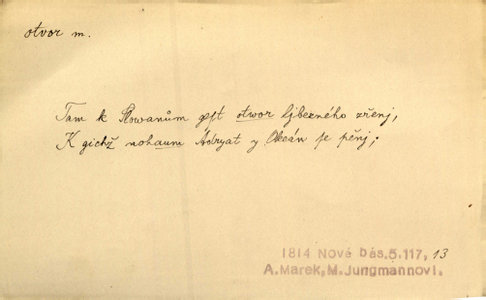 otvor m.
Tam k Slowanům gest otwor ljbezného zřenj,
K gichž nohaum Ádryat y Okeán se pěnj;
1814 Nové bás.5.117, 13
A.Marek, M.Jungmannovi.